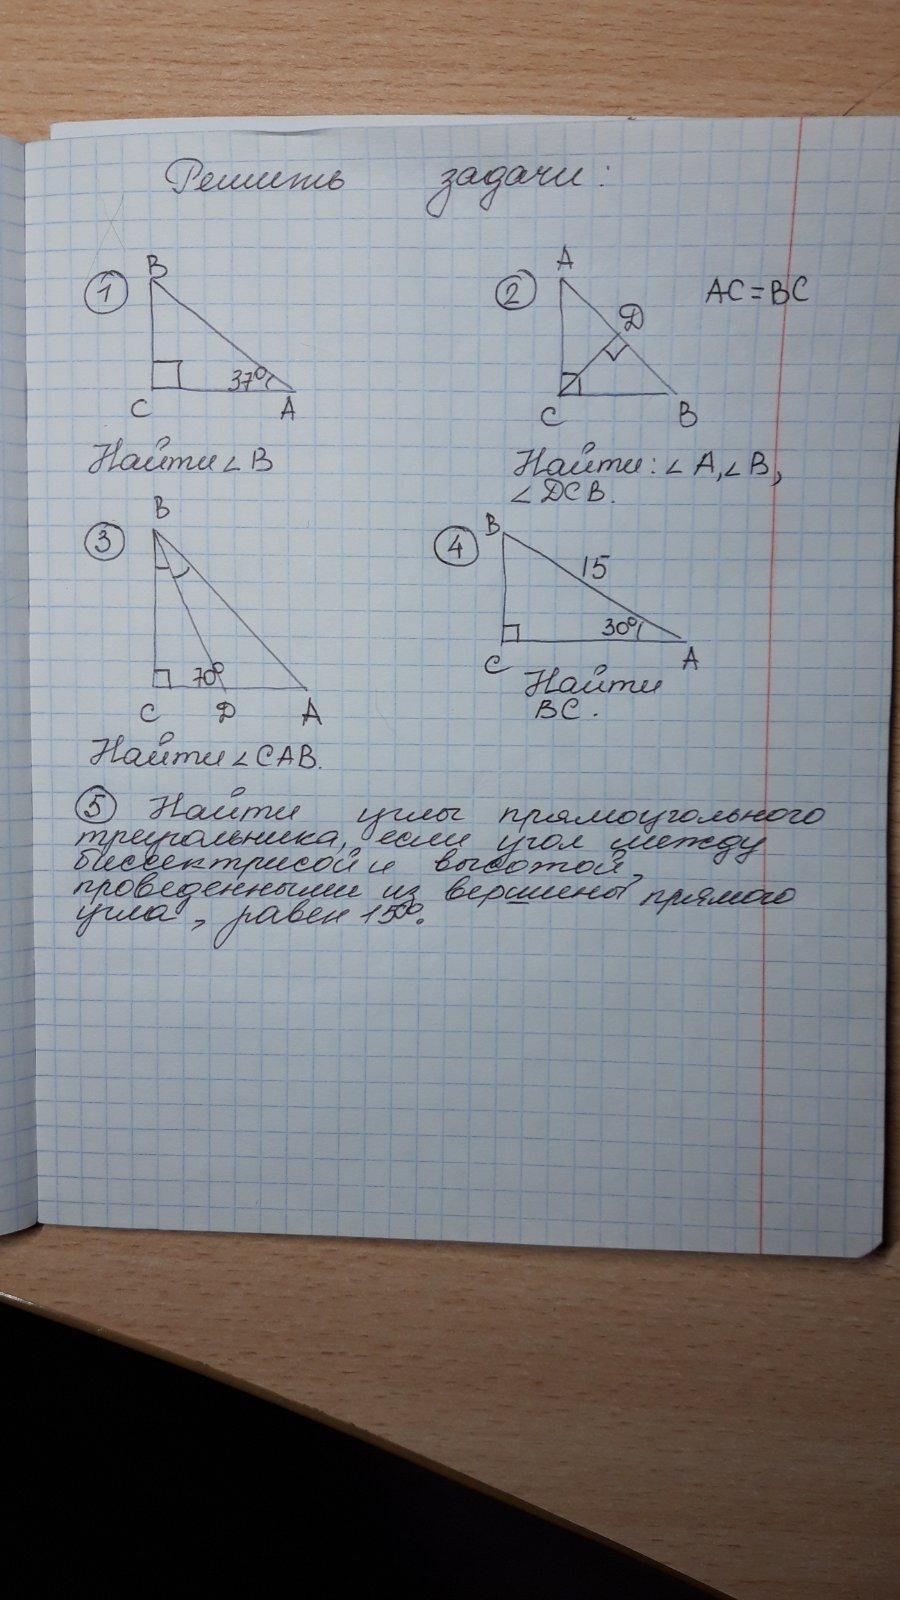 Решить задачи:
1
B
37°
C
A
Найти ∠B
2
A
AC=BC
D
C
B
Найти: ∠A, ∠B,
∠DCB.
3
B
70°
C
D
A
Найти ∠CAB.
4
B
15
30°
C
A
Найти
BC.
5 Найти углы прямоугольного
треугольника, если угол между
биссектрисой и высотой,
проведенными из вершины прямого
угла, равен 15°.